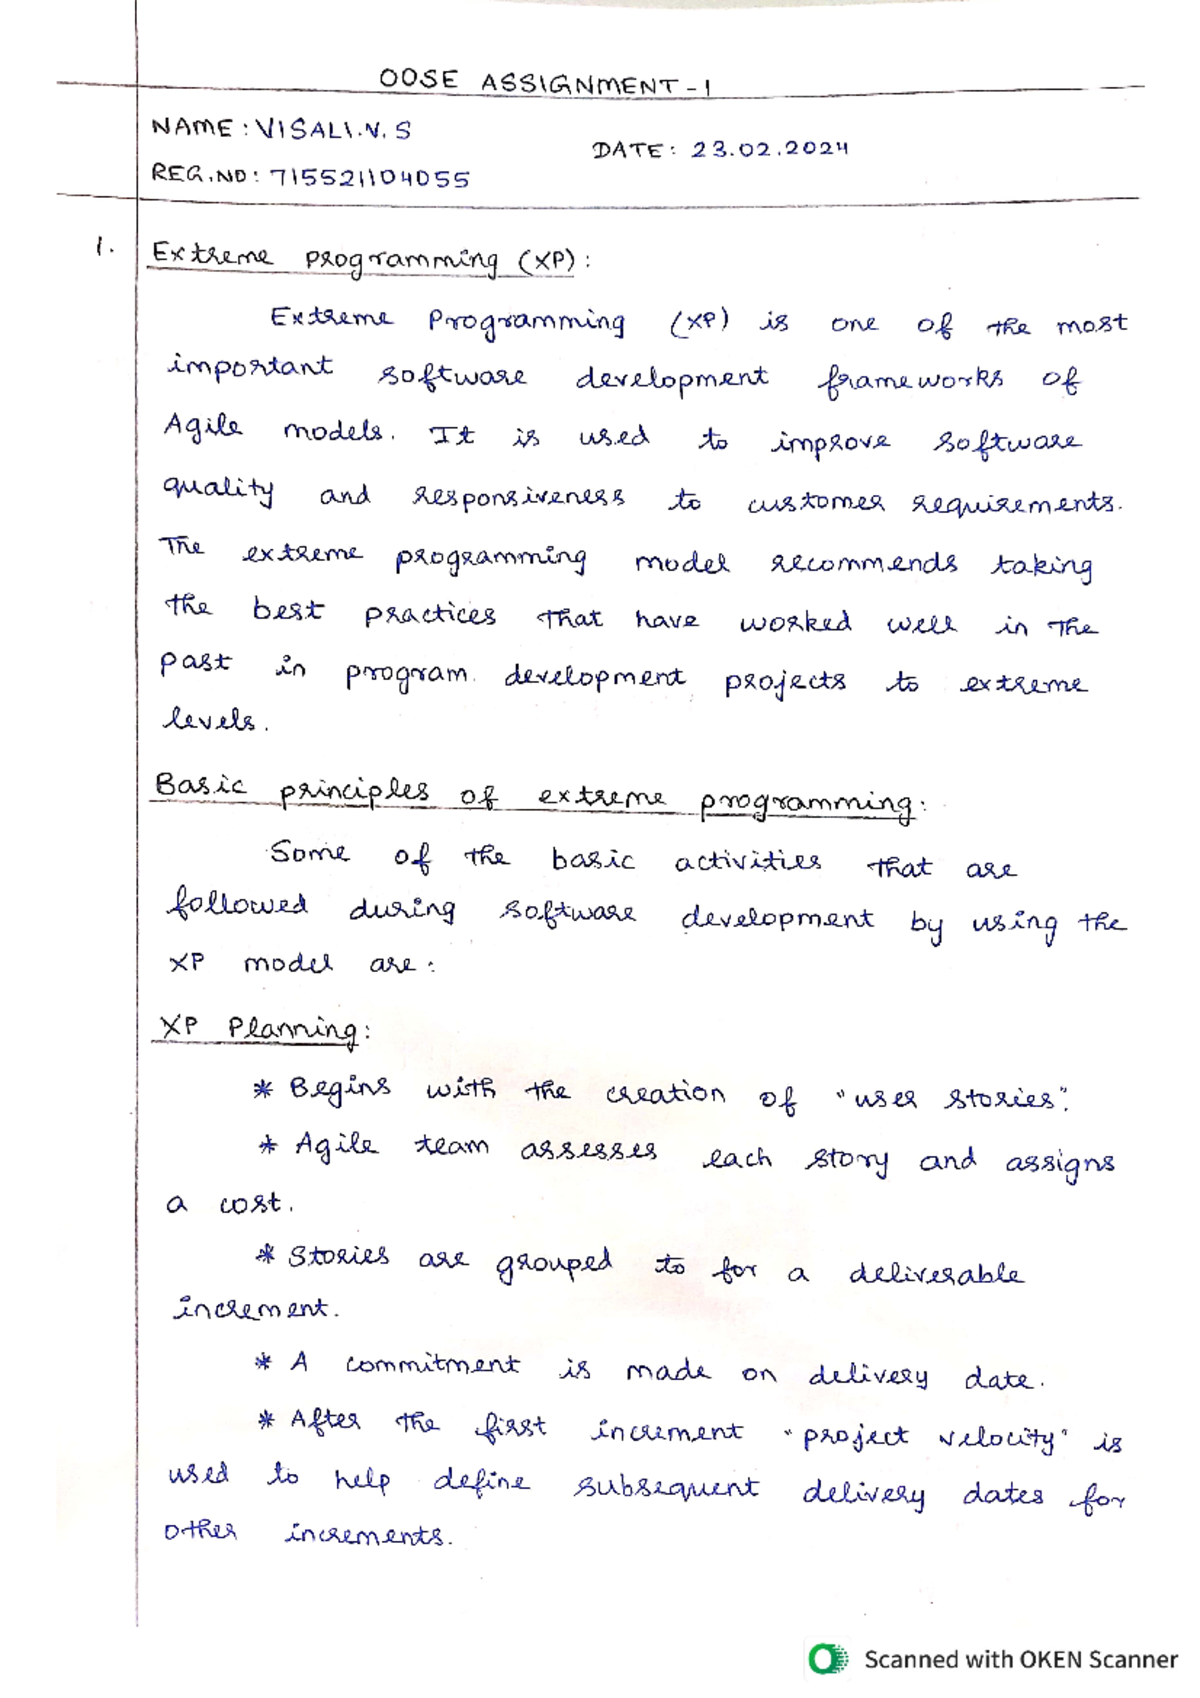 OOSE ASSIGNMENT - 1
NAME : VISALI.V.S
DATE : 23.02.2024
REG.NO : 715521104055
1. Extreme programming (XP) :
Extreme Programming (XP) is one of the most
important software development frameworks of
Agile models. It is used to improve software
quality and responsiveness to customer requirements.
The extreme programming model recommends taking
the best practices that have worked well in the
past in program development projects to extreme
levels.
Basic principles of extreme programming :
Some of the basic activities that are
followed during software development by using the
XP model are :
XP Planning :
* Begins with the creation of "user stories".
* Agile team assesses each story and assigns
a cost.
* Stories are grouped to for a deliverable
increment.
* A commitment is made on delivery date.
* After the first increment "project velocity" is
used to help define subsequent delivery dates for
other increments.
Scanned with OKEN Scanner